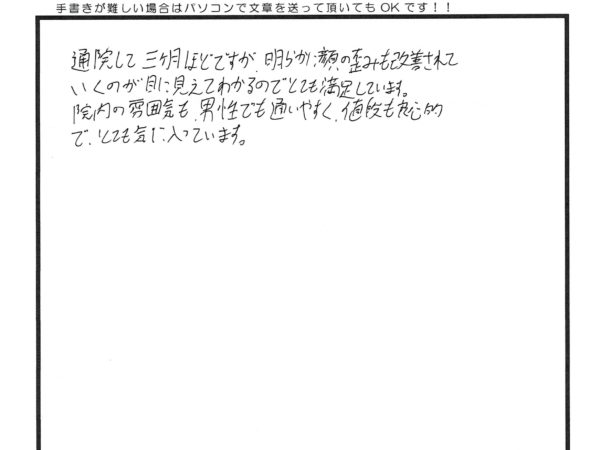 手書きが難しい場合はパソコンで文章を送って頂いてもOKです!!
通院して三ヶ月ほどですが、明らかに顔の歪みも改善されて
いくのが目に見えてわかるのでとても満足しています。
院内の雰囲気も、男性でも通いやすく、値段も良心的
で、とても気に入っています。